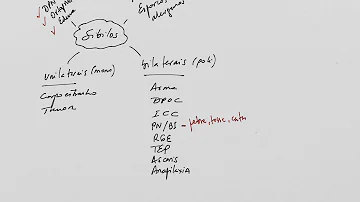 ↓ DPN
↓ Ortopn
↓ Edema
Esforços
alergenos
Sibilos
unilaterais (mono)
Corpo estranho
Tumor
bilaterais (poli)
Asma
DPOC
ICC
PN/BS - febre, tosse, catarro
RGE
TEP
Ascaris
Anafilaxia